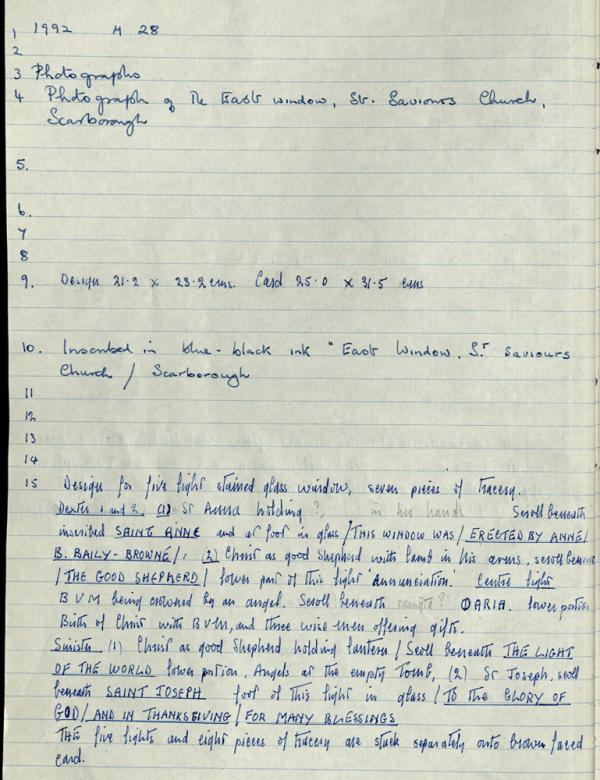 1 1992 M 28
2
3 Photographs
4 Photograph of the East window, St. Saviours Church,
Scarborough
5.
6.
7
8
9. Design 21.2 x 23.2 cms. Card 25.0 x 31.5 cms
10. Inscribed in blue-black ink "East Window. St Saviours
Church / Scarborough
11
12
13
14
15 Design for five light stained glass window, seven pieces of tracery.
Dexter 1 and 2. (1) St Anna holding ?, in her hands Scroll beneath
inscribed SAINT ANNE and at foot in glass / THIS WINDOW WAS / ERECTED BY ANNE /
B. BAILY-BROWNE /; (2) Christ as good Shepherd with lamb in his arms, scroll beneath
/ THE GOOD SHEPHERD / lower part of this light 'Annunciation.' Centre light
B V M being crowned by an angel. Scroll beneath ΦARIA. lower portion
Birth of Christ with B V M, and three wise men offering gifts.
Sinister (1) Christ as good Shepherd holding lantern / Scroll beneath THE LIGHT
OF THE WORLD lower portion, Angels at the empty Tomb, (2) St Joseph, scroll
beneath SAINT JOSEPH foot of this light in glass / TO THE GLORY OF
GOD / AND IN THANKSGIVING / FOR MANY BLESSINGS
THE five lights and eight pieces of tracery are stuck separately onto brown faced
card.